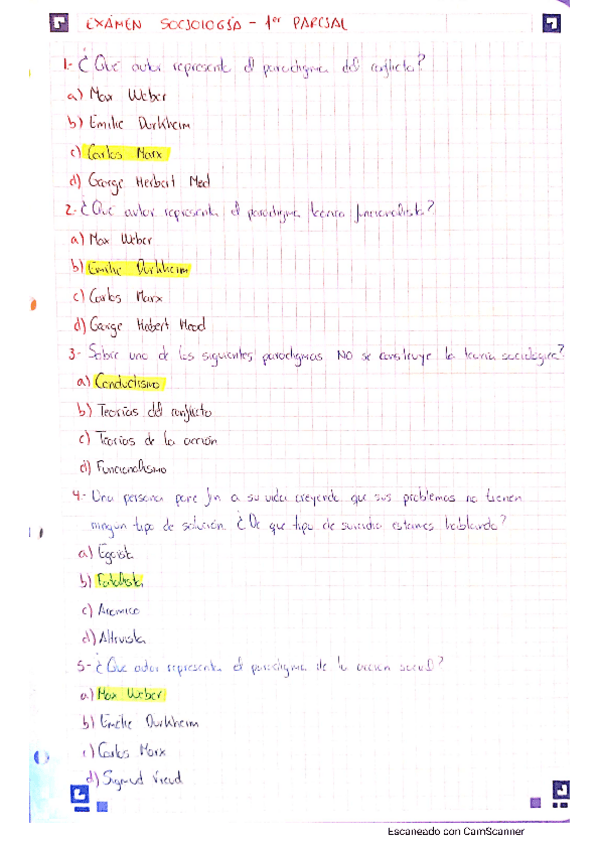 EXÁMEN SOCIOLOGÍA - 1er PARCIAL
1.- ¿Qué autor representa el paradigma del conflicto?
a) Max Weber
b) Emilie Durkheim
c) Carlos Marx
d) George Herbert Med
2.- ¿Qué autor representa el paradigma teoría funcionalista?
a) Max Weber
b) Emilie Durkheim
c) Carlos Marx
d) George Herbert Mead
3- Sobre uno de los siguientes paradigmas NO se construye la teoría sociológica?
a) Conductismo
b) Teorías del conflicto
c) Teorías de la acción
d) Funcionalismo
4.- Una persona pone fin a su vida creyendo que sus problemas no tienen
ningun tipo de solución ¿De que tipo de suicidio estamos hablando?
a) Egoista
b) Fatalista
c) Anómico
d) Altruista
5- ¿Que autor representa el paradigma de la acción social?
a) Max Weber
b) Emilie Durkheim
c) Carlos Marx
d) Sigmud Freud
Escaneado con CamScanner